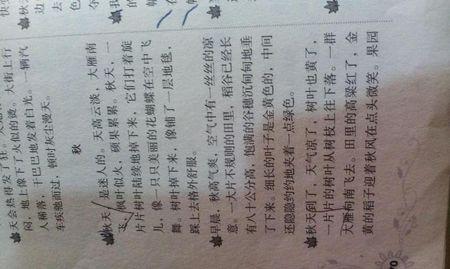 天会热得发了狂。
闷，地上像下了火似的烫。大街上行
人稀落，干巴巴地发着白光。一辆汽
车疾驰而过，顿时灰尘漫天。
秋
秋天，是迷人的。天高云淡，大雁南
飞，枫叶似火，硕果累累。秋天，一
片片树叶陆续地掉下来，它们打着旋
儿，像一只只美丽的花蝴蝶在空中飞
舞，树叶掉下来，像铺了一层地毯，
踩上去格外舒服。
早晨，秋高气爽，空气中有一丝丝的凉
意。一大片不规则的田里，稻谷已经长
有八十公分高，饱满的谷穗沉甸甸地垂
了下来。细长的叶子是金黄色的，中间
还隐隐约约地夹着一点绿色。
秋天到了，天气凉了，树叶也黄了，
一片片的树叶从树枝上往下落。一群
大雁向南飞去。田里的高粱红了，金
黄的稻子迎着秋风在点头微笑。果园